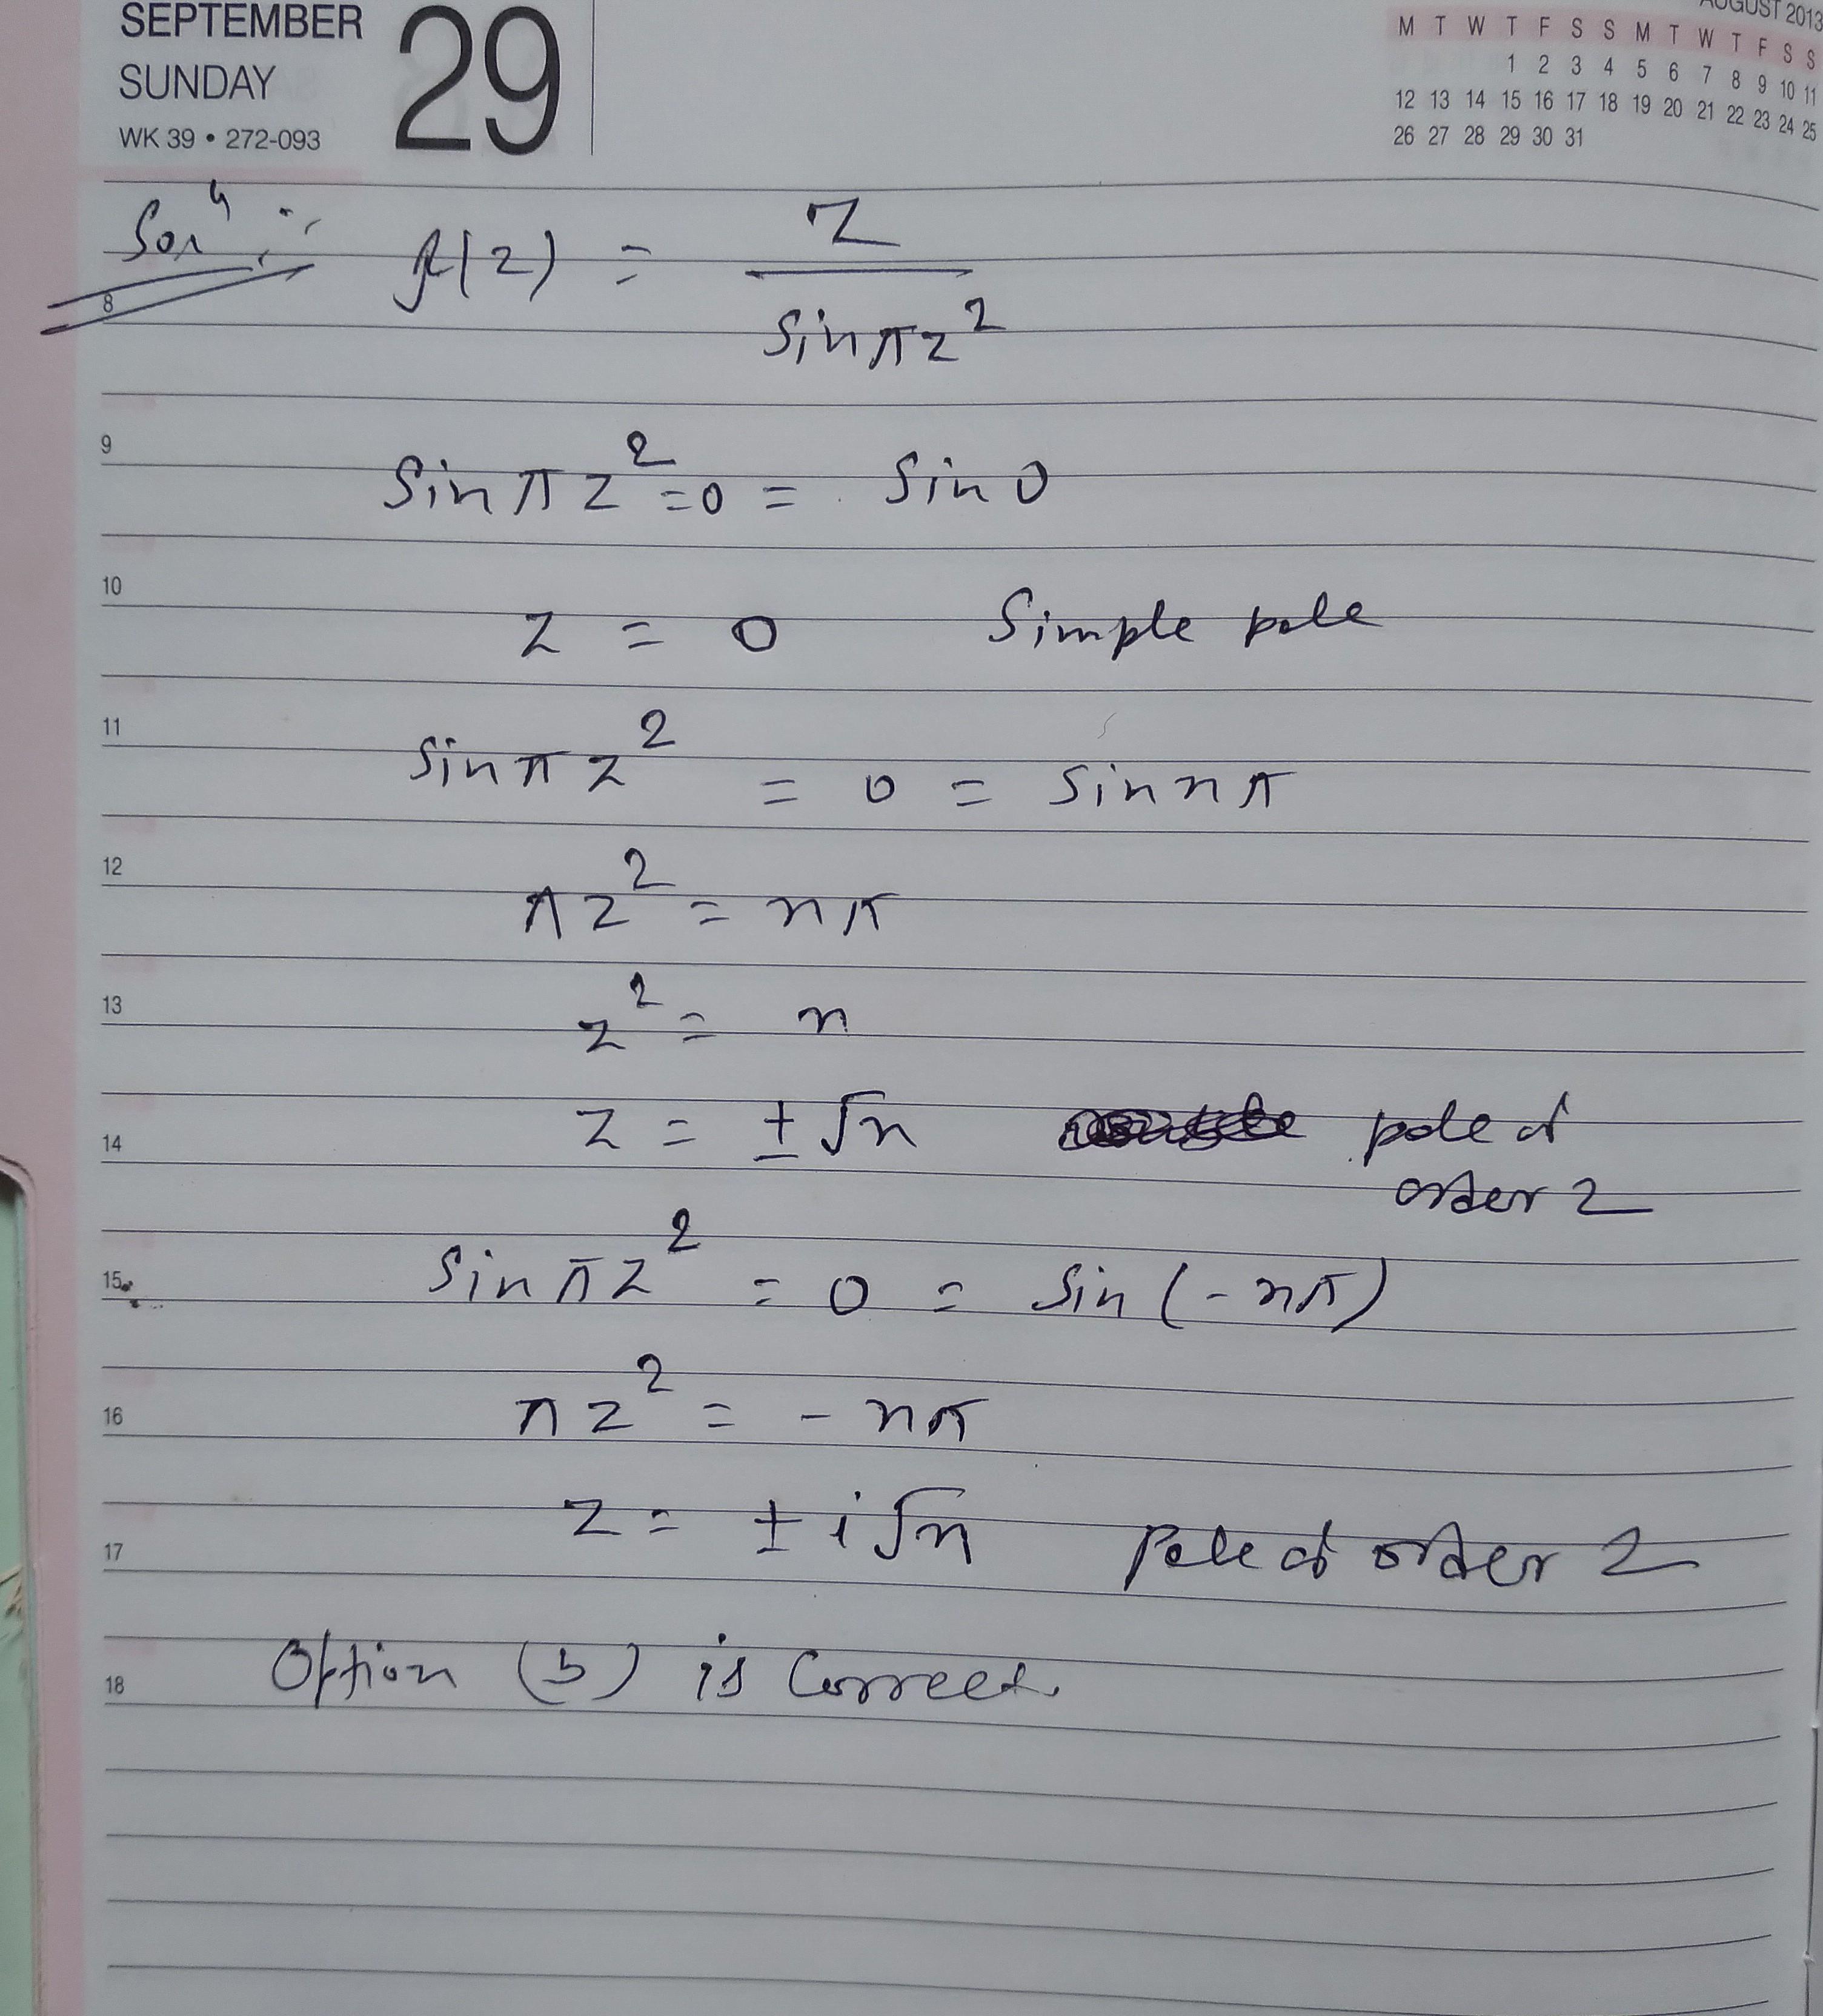 SEPTEMBER
SUNDAY
WK 39 • 272-093
29
AUGUST 2013
M T W T F S S M T W T F S S
1 2 3 4 5 6 7 8 9 10 11
12 13 14 15 16 17 18 19 20 21 22 23 24 25
26 27 28 29 30 31
Solⁿ :- f(z) = z / sinπz²
8
9
sinπz² = 0 = sin0
10
z = 0 Simple pole
11
sinπz² = 0 = sin nπ
12
πz² = nπ
13
z² = n
14
z = ±√n pole of
order 2
15
sinπz² = 0 = sin(-nπ)
16
πz² = -nπ
17
z = ±i√n Pole of order 2
18
Option (b) is Correct.